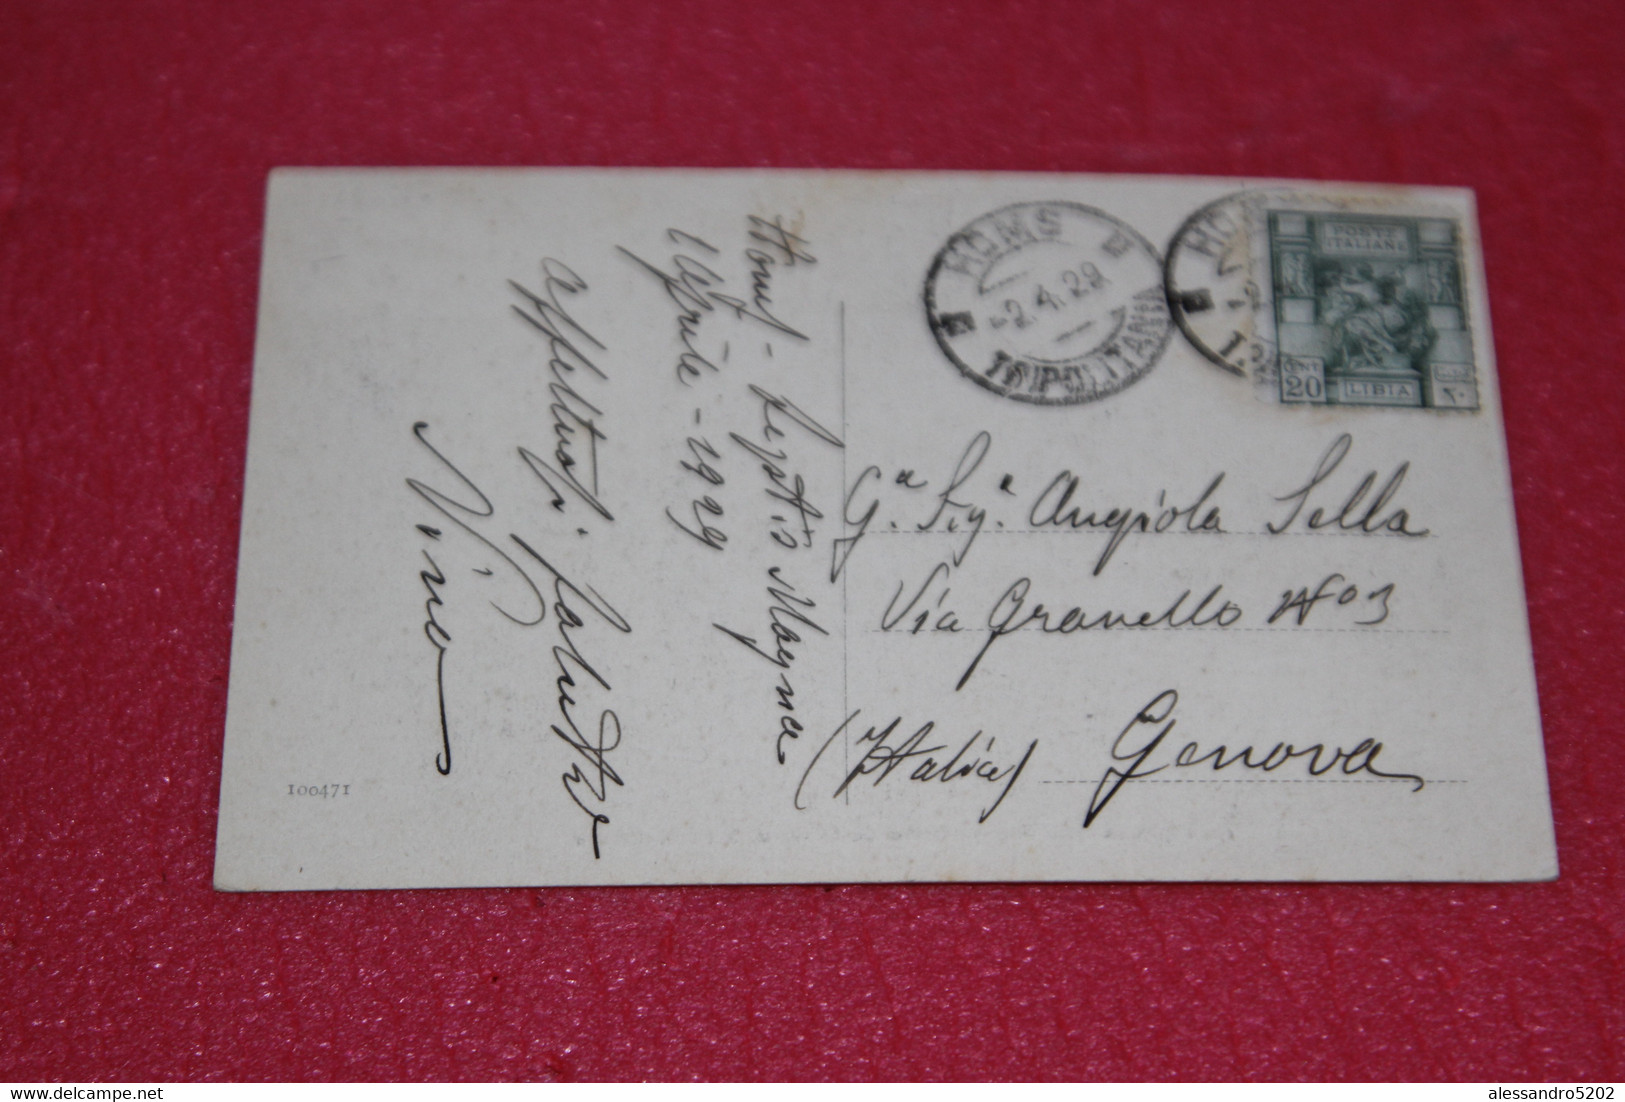 Homs - Leptis Magna
1 Aprile - 1929
affettuosi saluti
Nino
100471
HOMS
2.4.29
TRIPOLITANIA
HO
POSTE
ITALIANE
CENT
20
LIBIA
٢٠
G.a Sig.a Angiola Sella
Via Granello No 3
(Italia) Genova
www.delcampe.net
alessandro5202